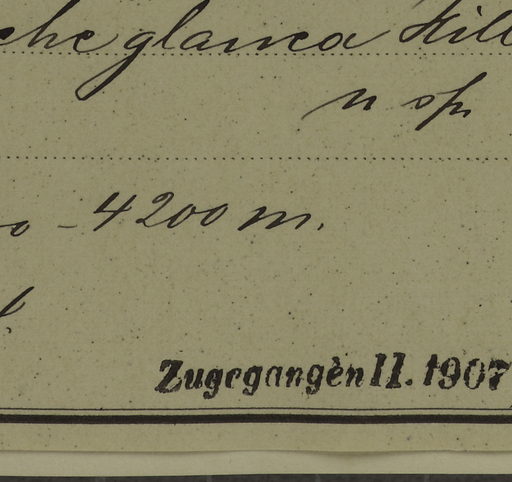 che glauca Kill
n sp
0 - 4200 m.
Zugegangen II. 1907